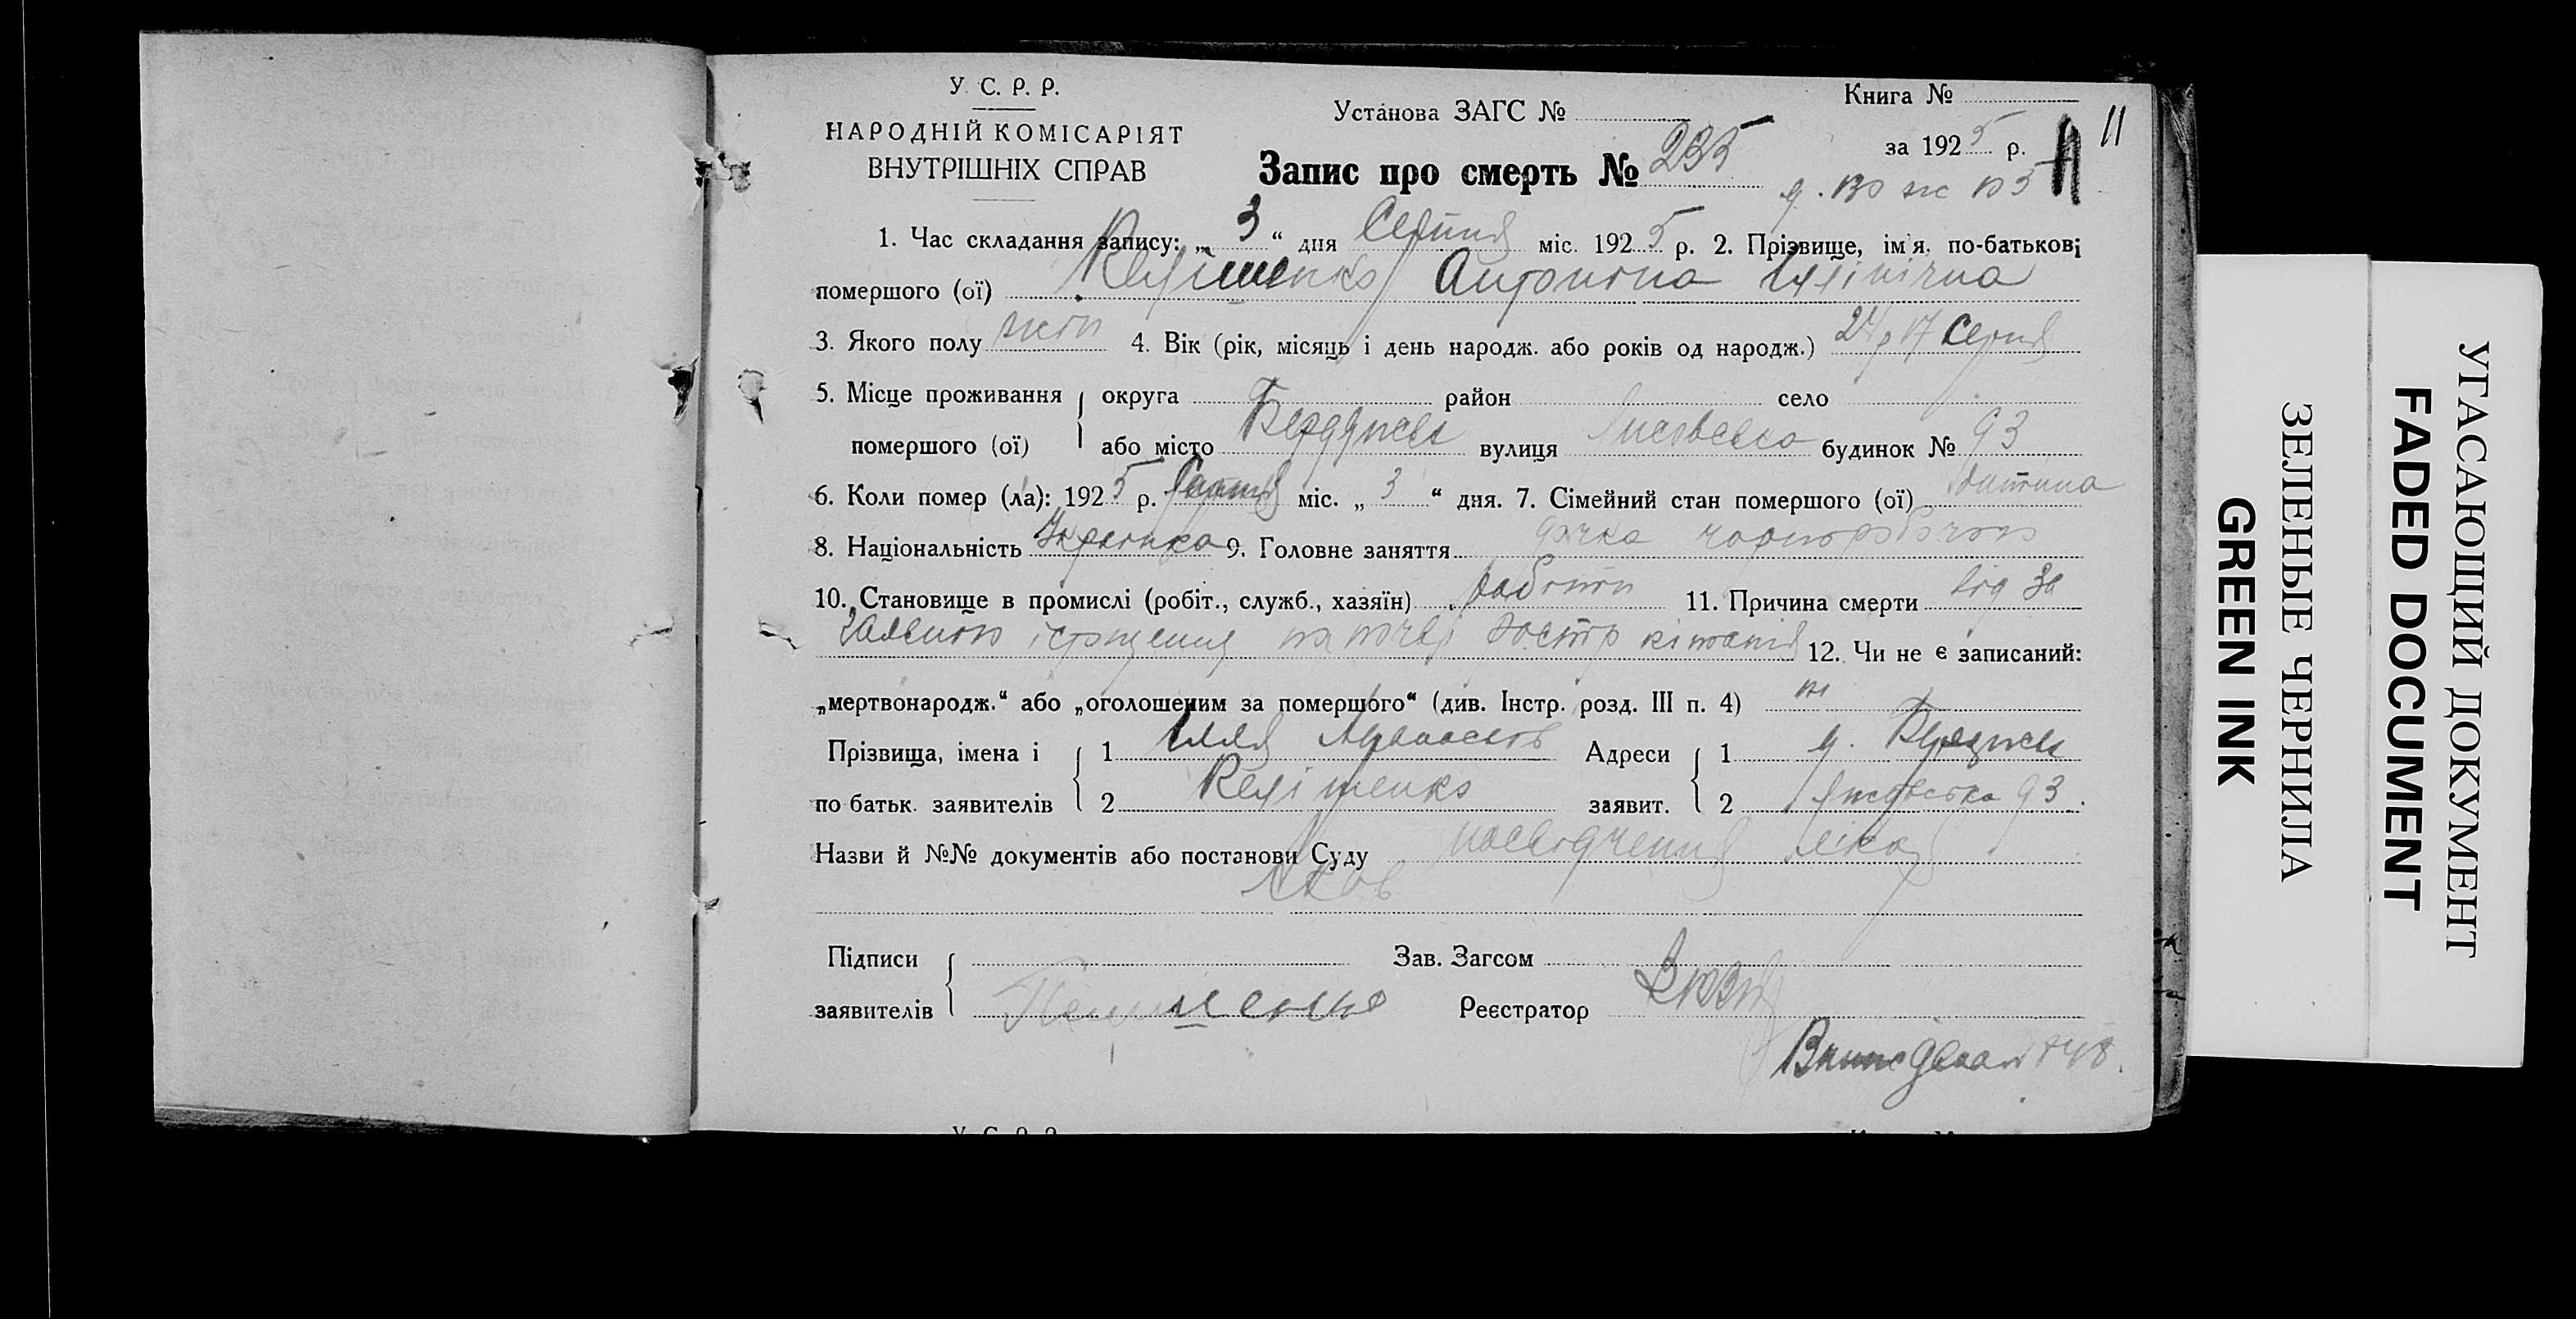 У. С. Р. Р.
НАРОДНІЙ КОМІСАРІЯТ
ВНУТРІШНІХ СПРАВ
Установа ЗАГС №
Запис про смерть № 235
Книга №
за 1925 р.
11
1. Час складання запису: „ 3 “ дня Серпня міс. 1925 р. 2. Прізвище, ім'я, по-батькові
помершого (ої) Антонина Іллінічна
3. Якого полу жін 4. Вік (рік, місяць і день народж. або років од народж.) 24 р 17 Серпня
5. Місце проживання округа район село
помершого (ої) або місто Бердичев вулиця будинок № 93
6. Коли помер (ла): 1925 р. Серпня міс. „ 3 “ дня. 7. Сімейний стан помершого (ої) дитина
8. Національність Українка 9. Головне заняття дочка чорноробочого
10. Становище в промислі (робіт., служб., хазяїн) 11. Причина смерти від за
гального істощения на почві гостр
12. Чи не є записаний:
„мертвонародж.“ або „оголошеним за помершого“ (див. Інстр. розд. III п. 4) ні
Прізвища, імена і 1 Ілля Афанасьев Адреси 1 Бердичев
по батьк. заявителів 2 заявит. 2 93
Назви й №№ документів або постанови Суду посвідчення лікаря
Підписи Зав. Загсом
заявителів Реєстратор
У. С. Р. Р.
ЗЕЛЕНЫЕ ЧЕРНИЛА
GREEN INK
УГАСАЮЩИЙ ДОКУМЕНТ
FADED DOCUMENT